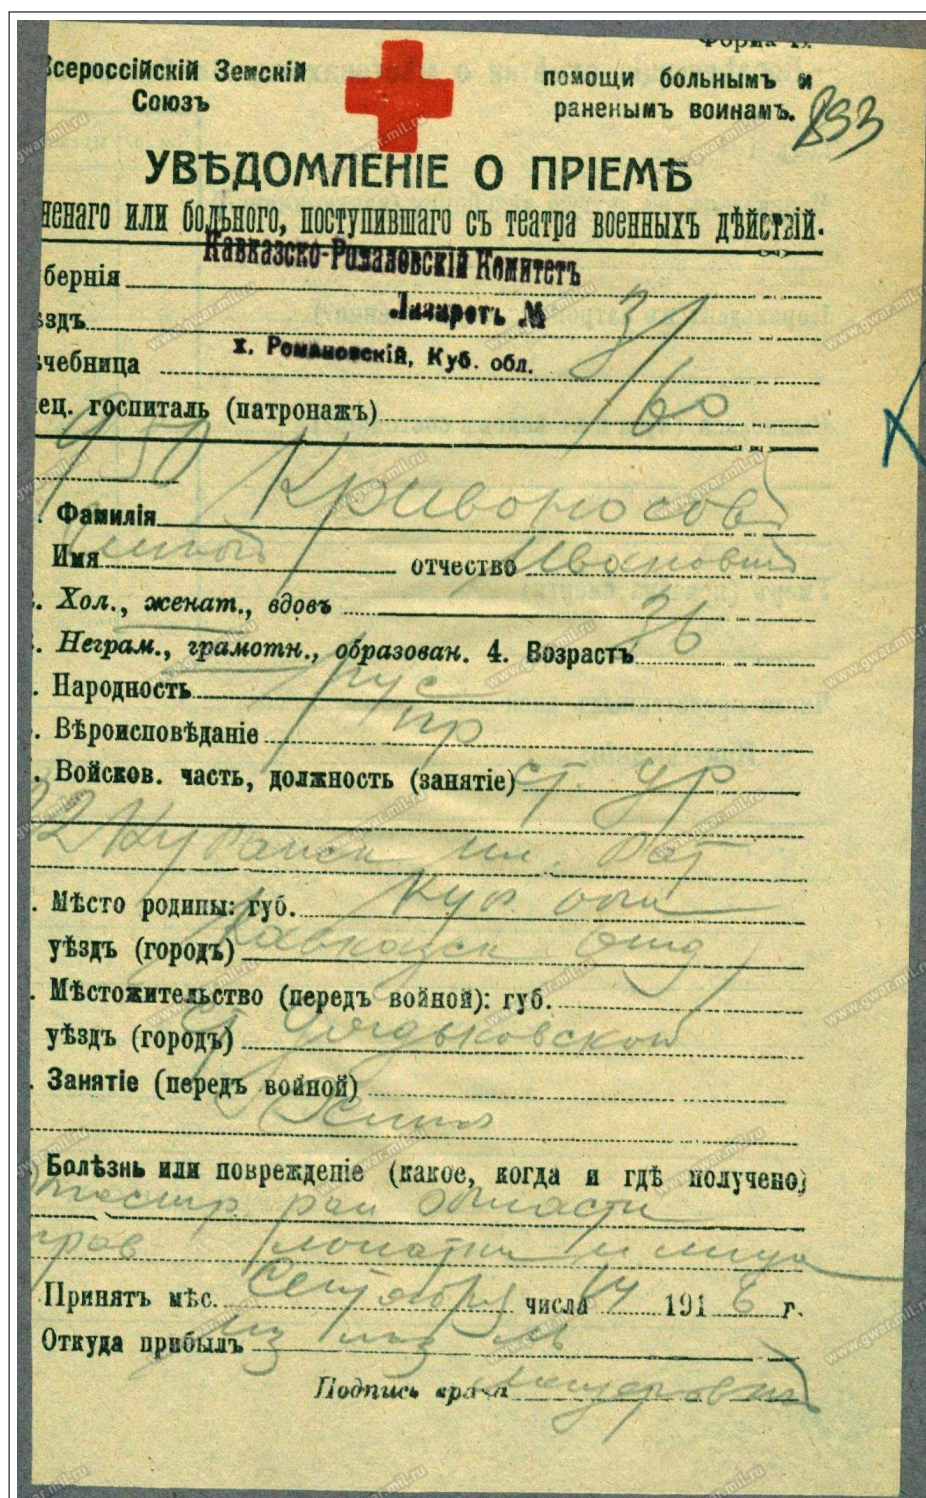 Форма
Всероссійскій Земскій
Союзъ
помощи больнымъ и
раненымъ воинамъ.
893
УВѢДОМЛЕНІЕ О ПРІЕМѢ
ненаго или больного, поступившаго съ театра военныхъ дѣйствій.
Кавказско-Романовскій Комитетъ
бернія
Лазаретъ №
ѣздъ
х. Романовскій, Куб. обл.
ѣчебница
ец. госпиталь (патронажъ)
160
950
Фамилія Кривоносов
Имя отчество Иванович
Хол., женат., вдовъ
Неграм., грамотн., образован. 4. Возрастъ 36
Народность рус
Вѣроисповѣданіе пр
Войсков. часть, должность (занятіе) ст. ур
22 Кубанск пл. бат
Мѣсто родины: губ. Куб. обл
уѣздъ (городъ) Кавказск отд
Мѣстожительство (передъ войной): губ.
уѣздъ (городъ) ст
Занятіе (передъ войной)
Болѣзнь или поврежденіе (какое, когда и гдѣ получено)
ран области
прав лопатки и лица
Принятъ мѣс. Сентября числа 14 1916 г.
Откуда прибылъ из лаз
Подпись врача
www.gwar.mil.ru